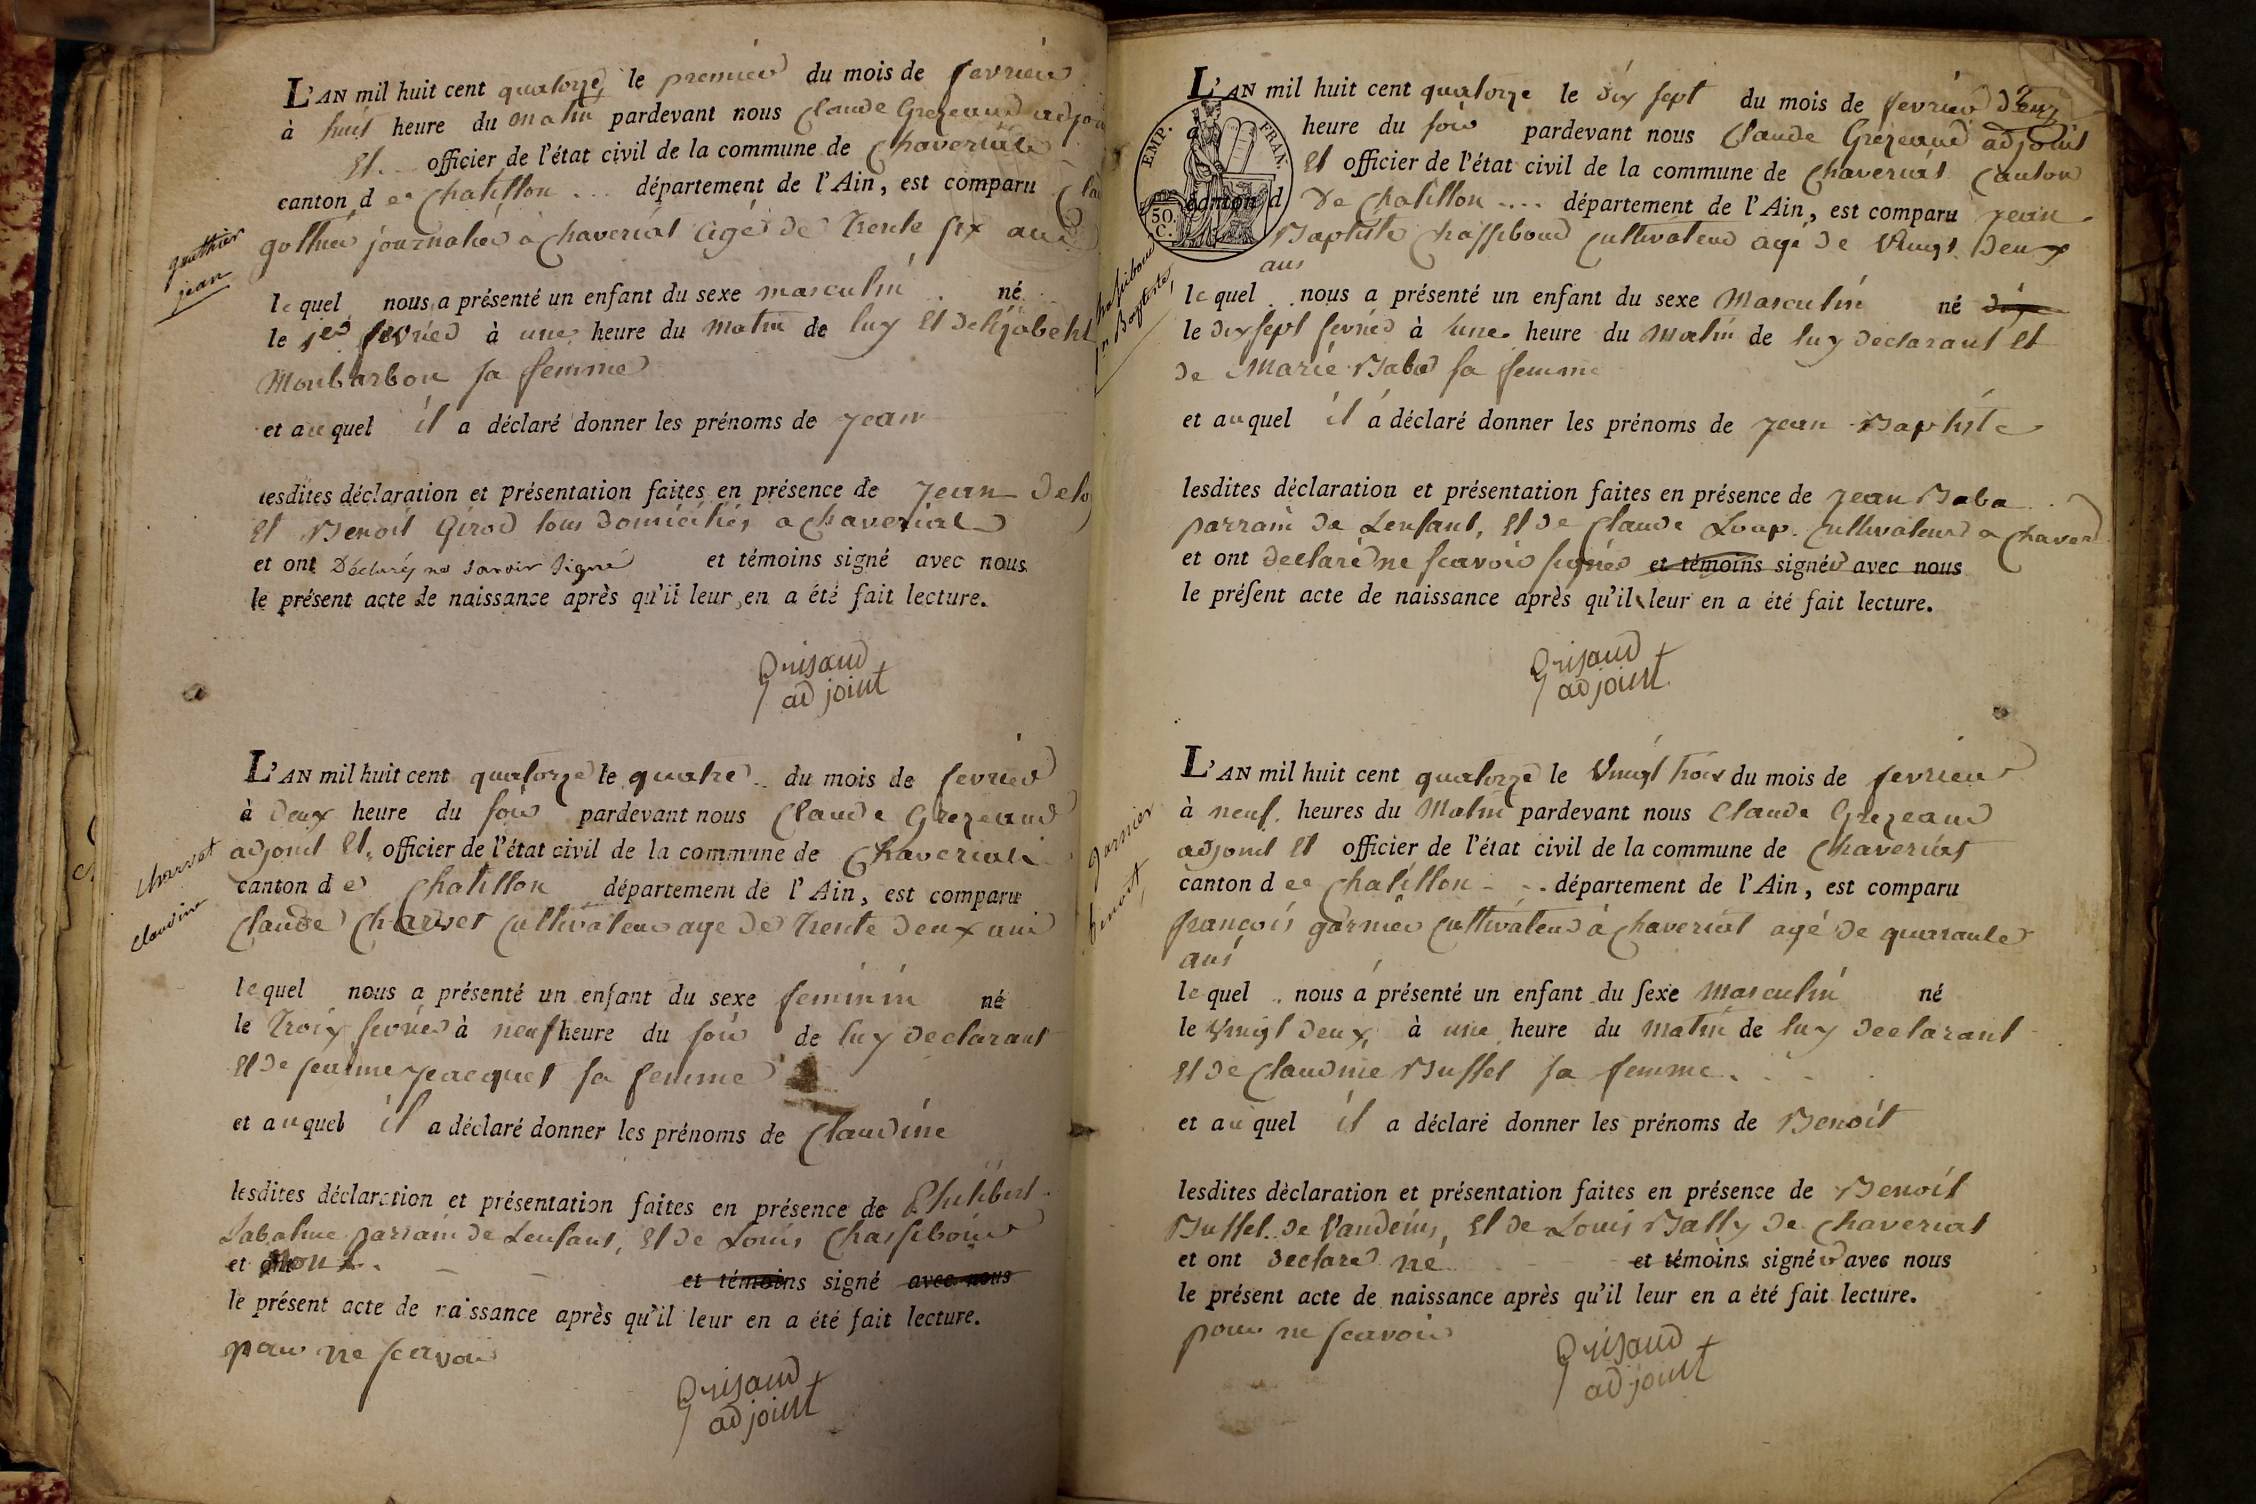 L'AN mil huit cent quatorze le premier du mois de fevrier
à huit heure du matin pardevant nous Claude Grezeaud adjoi
Et officier de l'état civil de la commune de Chaveriat
canton de Chatillon ... département de l'Ain, est comparu Cla
gothier journalier à chaveriat agé de Trente six ans
gauthier
jean
lequel nous a présenté un enfant du sexe masculin né
le 1er fevrier à une heure du matin de luy Et
Monbarbon sa femme
et auquel il a déclaré donner les prénoms de jean
lesdites déclaration et présentation faites en présence de jean
Et Benoit Girod tous domiciliés a chaveriat
et ont Déclarés ne savoir signé et témoins signé avec nous
le présent acte de naissance après qu'il leur en a été fait lecture.
Grisaud
adjoint
L'AN mil huit cent quatorze le quatre du mois de fevrier
à deux heure du soir pardevant nous Claude Grezeaud
adjoint Et officier de l'état civil de la commune de Chaveriat
canton de Chatillon département de l'Ain, est comparu
Claude Charvet Cultivateur age de Trente deux ans
charvet
claudine
lequel nous a présenté un enfant du sexe feminin né
le Trois fevrier à neuf heure du soir de luy declarant
Et de jeanne jacquet sa femme
et auquel il a déclaré donner les prénoms de Claudine
lesdites déclaration et présentation faites en présence de Philibert
parrain de Lenfant, Et de Louis Chassiboud
et ont et témoins signé avec nous
le présent acte de naissance après qu'il leur en a été fait lecture.
pour ne scavoir
Grisaud
adjoint
L'AN mil huit cent quatorze le dix sept du mois de fevrier deux
EMP. FRAN.
50.
C.
à heure du soir pardevant nous Claude Grezeaud adjoint
Et officier de l'état civil de la commune de Chaveriat Canton
canton d De Chatillon .... département de l'Ain, est comparu jean
Baptiste Chassiboud Cultivateur agé de Vingt Deux
ans
chassiboud
jn Baptiste
lequel nous a présenté un enfant du sexe Masculin né
le dix sept fevrier à une heure du Matin de luy declarant Et
de Marie Baba sa femme
et auquel il a déclaré donner les prénoms de jean Baptiste
lesdites déclaration et présentation faites en présence de jean Baba
parrain de Lenfant, Et de Claude Loup Cultivateurs a Chaver
et ont declaré ne scavoir signer et témoins signér avec nous
le présent acte de naissance après qu'il leur en a été fait lecture.
Grisaud
adjoint
L'AN mil huit cent quatorze le Vingt trois du mois de fevrier
à neuf heures du Matin pardevant nous Claude Grezeaud
adjoint Et officier de l'état civil de la commune de Chaveriat
canton de Chatillon département de l'Ain, est comparu
françois garnier Cultivateur à chaveriat agé de quarante
ans
garnier
benoit
lequel nous a présenté un enfant du sexe Masculin né
le Vingt deux à une heure du matin de luy declarant
Et de Claudine Buffet sa femme
et auquel il a déclaré donner les prénoms de Benoit
lesdites déclaration et présentation faites en présence de Benoit
Buffet de Vandeins, Et de Louis Bally de Chaveriat
et ont declare ne et témoins signér avec nous
le présent acte de naissance après qu'il leur en a été fait lecture.
pour ne scavoir
Grisaud
adjoint